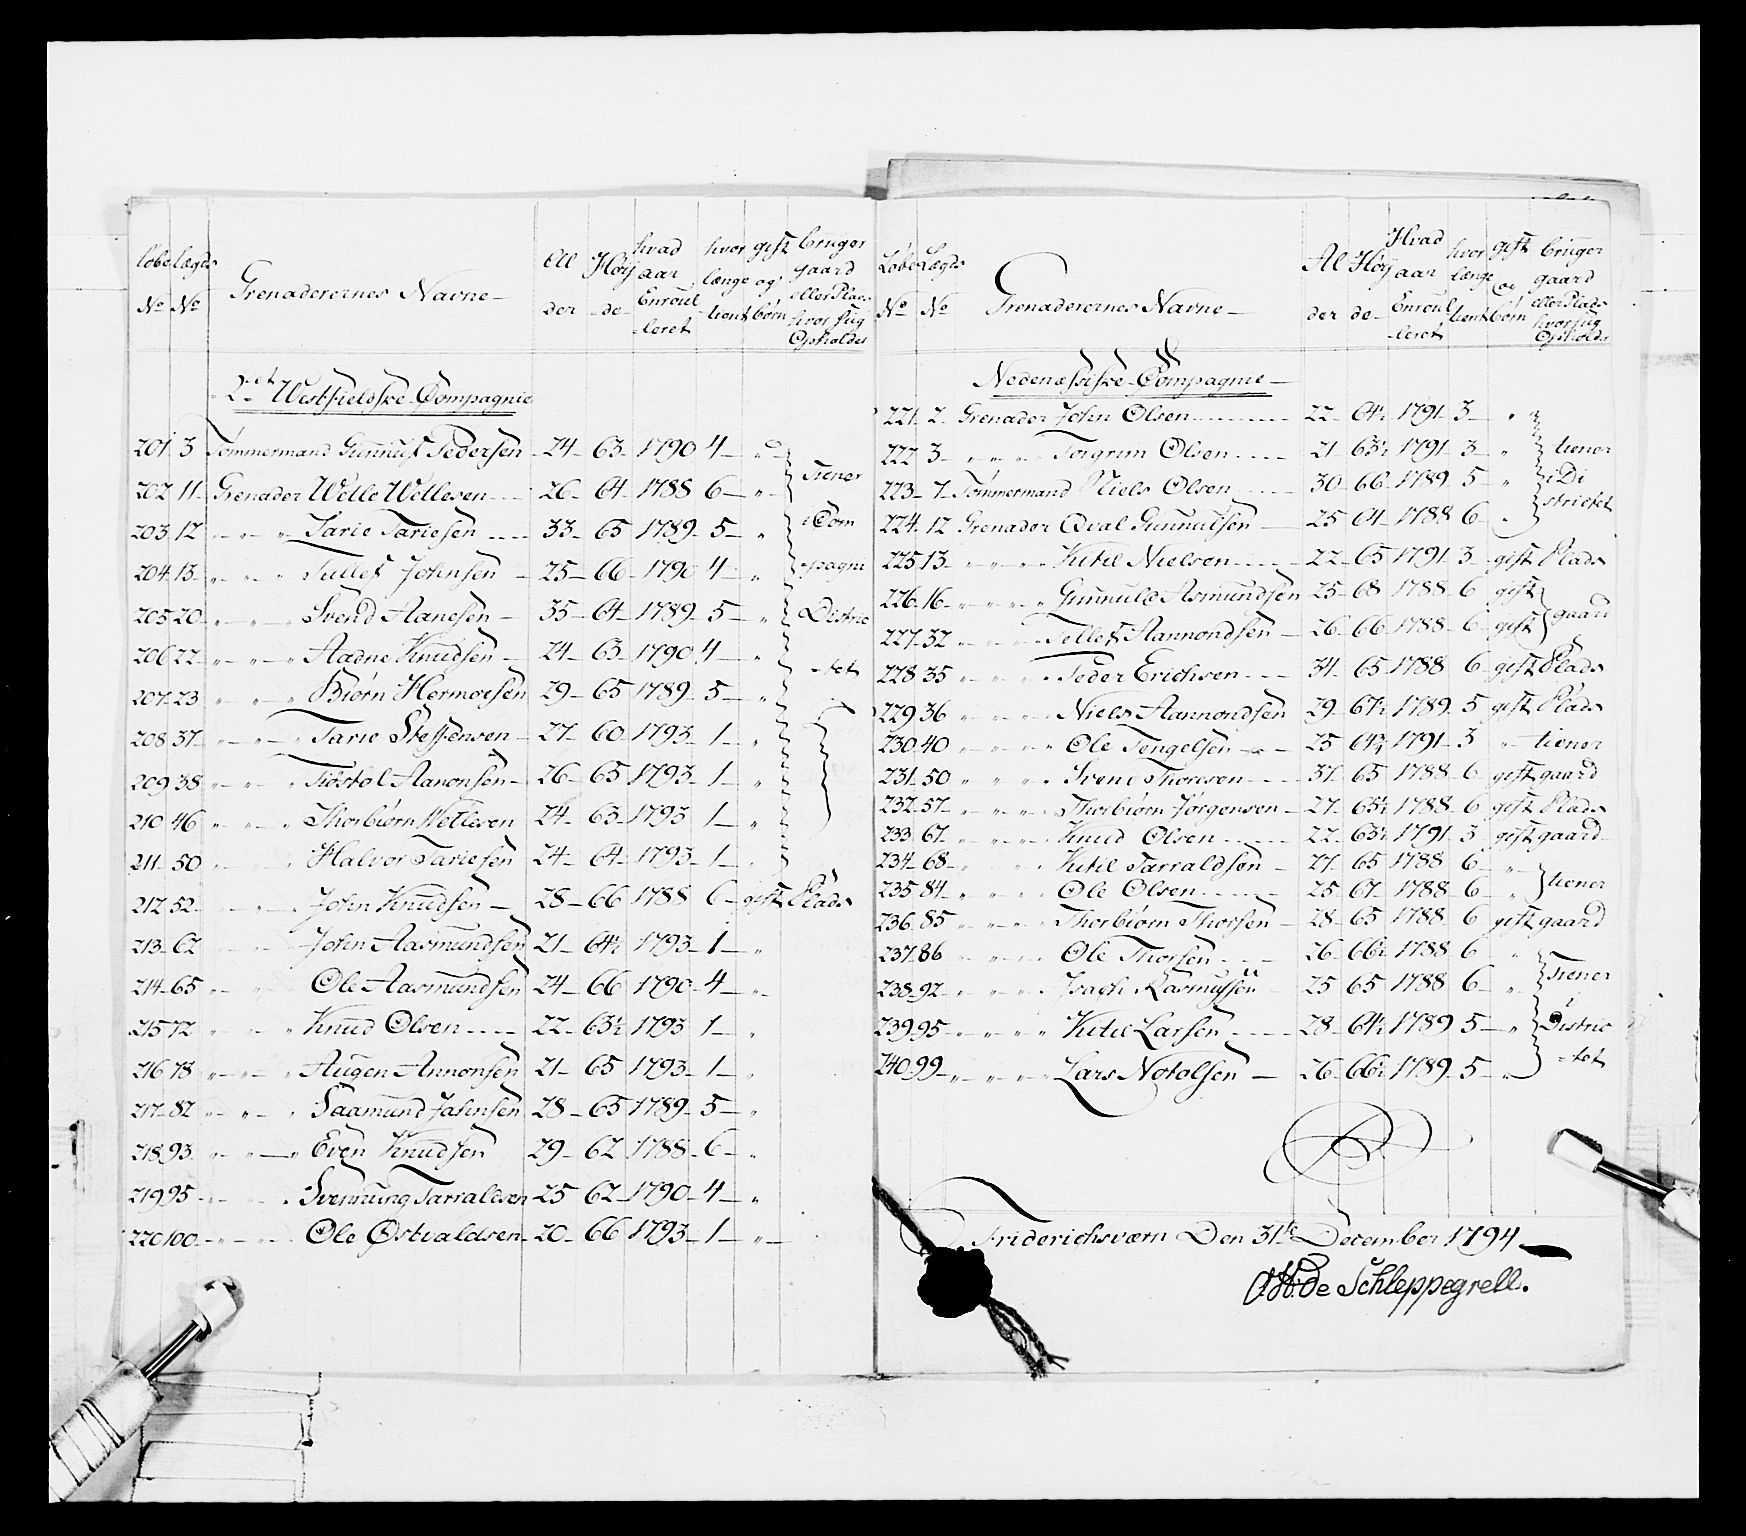 løbe No
lægds No
Grenaderernes Navne
All der
Høy de
hvad aar Enroulleret
hvor længe tient
gift og børn
bruger gaard eller Plads hvor sig Opholder
2det Westfieldske Compagnie
201 3 Tømmermand Gunnulf Pedersen 24 63 1790 4 "
202 11 Grenader Welle Wellesen 26 64 1788 6 "
203 12 " " " Tarie Tariesen 33 65 1789 5 "
204 13 " " " Tellef Johnsen 25 66 1790 4 "
205 20 " " " Svend Aanesen 35 64 1789 5 "
206 22 " " " Aadne Knudsen 24 63 1790 4 "
207 23 " " " Biørn Hermoesen 29 65 1789 5 "
208 37 " " " Tarie Steffensen 27 60 1793 1 "
209 38 " " " Tiøstol Aanonsen 26 65 1793 1 "
210 46 " " " Thorbiørn Wetlesen 24 63 1793 1 "
211 50 " " " Halvor Tariesen 24 64 1793 1 "
tiener i Compagni Districtet
212 52 " " " John Knudsen 28 66 1788 6 gift Plads
213 62 " " " John Aasmundsen 21 64½ 1793 1 "
214 65 " " " Ole Aasmundsen 24 66 1790 4 "
215 72 " " " Knud Olsen 22 63½ 1793 1 "
216 78 " " " Augen Annonsen 21 65 1793 1 "
217 82 " " " Saamund Johnsen 28 65 1789 5 "
218 93 " " " Even Knudsen 29 62 1788 6 "
219 95 " " " Svennung Tarraldsen 25 62 1790 4 "
220 100 " " " Ole Østvaldsen 20 66 1793 1 "
Løbe No
Lægds No
Grenaderernes Navne
Al der
Høy de
Hvad aar Enroulleret
hvor længe tient
gift og børn
bruger gaard eller Plads hvor sig Opholder
Nedenæssiske Compagnie
221 2 Grenader John Olsen 22 64½ 1791 3 " "
222 3 " " " Torgrim Olsen 21 63½ 1791 3 "
223 7 Tømmermand Niels Olsen 30 66 1789 5 "
224 12 Grenader Qval Gunnulsen 25 64 1788 6 "
tiener i Districtet
225 13 " " " Kitil Nielsen 22 65 1791 3 gift Plads
226 16 " " " Gunnuld Asmundsen 25 68 1788 6 gift
227 32 " " " Tellef Aanondsen 26 66 1788 6 gift
gaard
228 35 " " " Peder Erichsen 34 65 1788 6 gift Plads
229 36 " " " Niels Aannondsen 29 67½ 1789 5 gift Plads
230 40 " " " Ole Tengelsen 25 64¾ 1791 3 " tiener
231 50 " " " Svend Thoresen 37 65 1788 6 gift gaard
232 57 " " " Thorbiørn Jørgensen 27 65½ 1788 6 gift Plads
233 67 " " " Knud Olsen 22 63½ 1791 3 gift gaard
234 68 " " " Kitil Tarraldsen 27 65 1788 6 "
235 84 " " " Ole Olsen 25 67 1788 6 "
tiener
236 85 " " " Thorbiørn Thorsen 28 65 1788 6 gift gaard
237 86 " " " Ole Thorsen 26 66½ 1788 6 "
238 92 " " " Joseph Rasmussen 25 65 1788 6 "
239 95 " " " Kitil Larsen 28 64½ 1789 5 "
240 99 " " " Lars Notolsen 26 66½ 1789 5 "
Tiener i Districtet
Friderichsværn Den 31te December 1794
OH: de Schleppegrell.